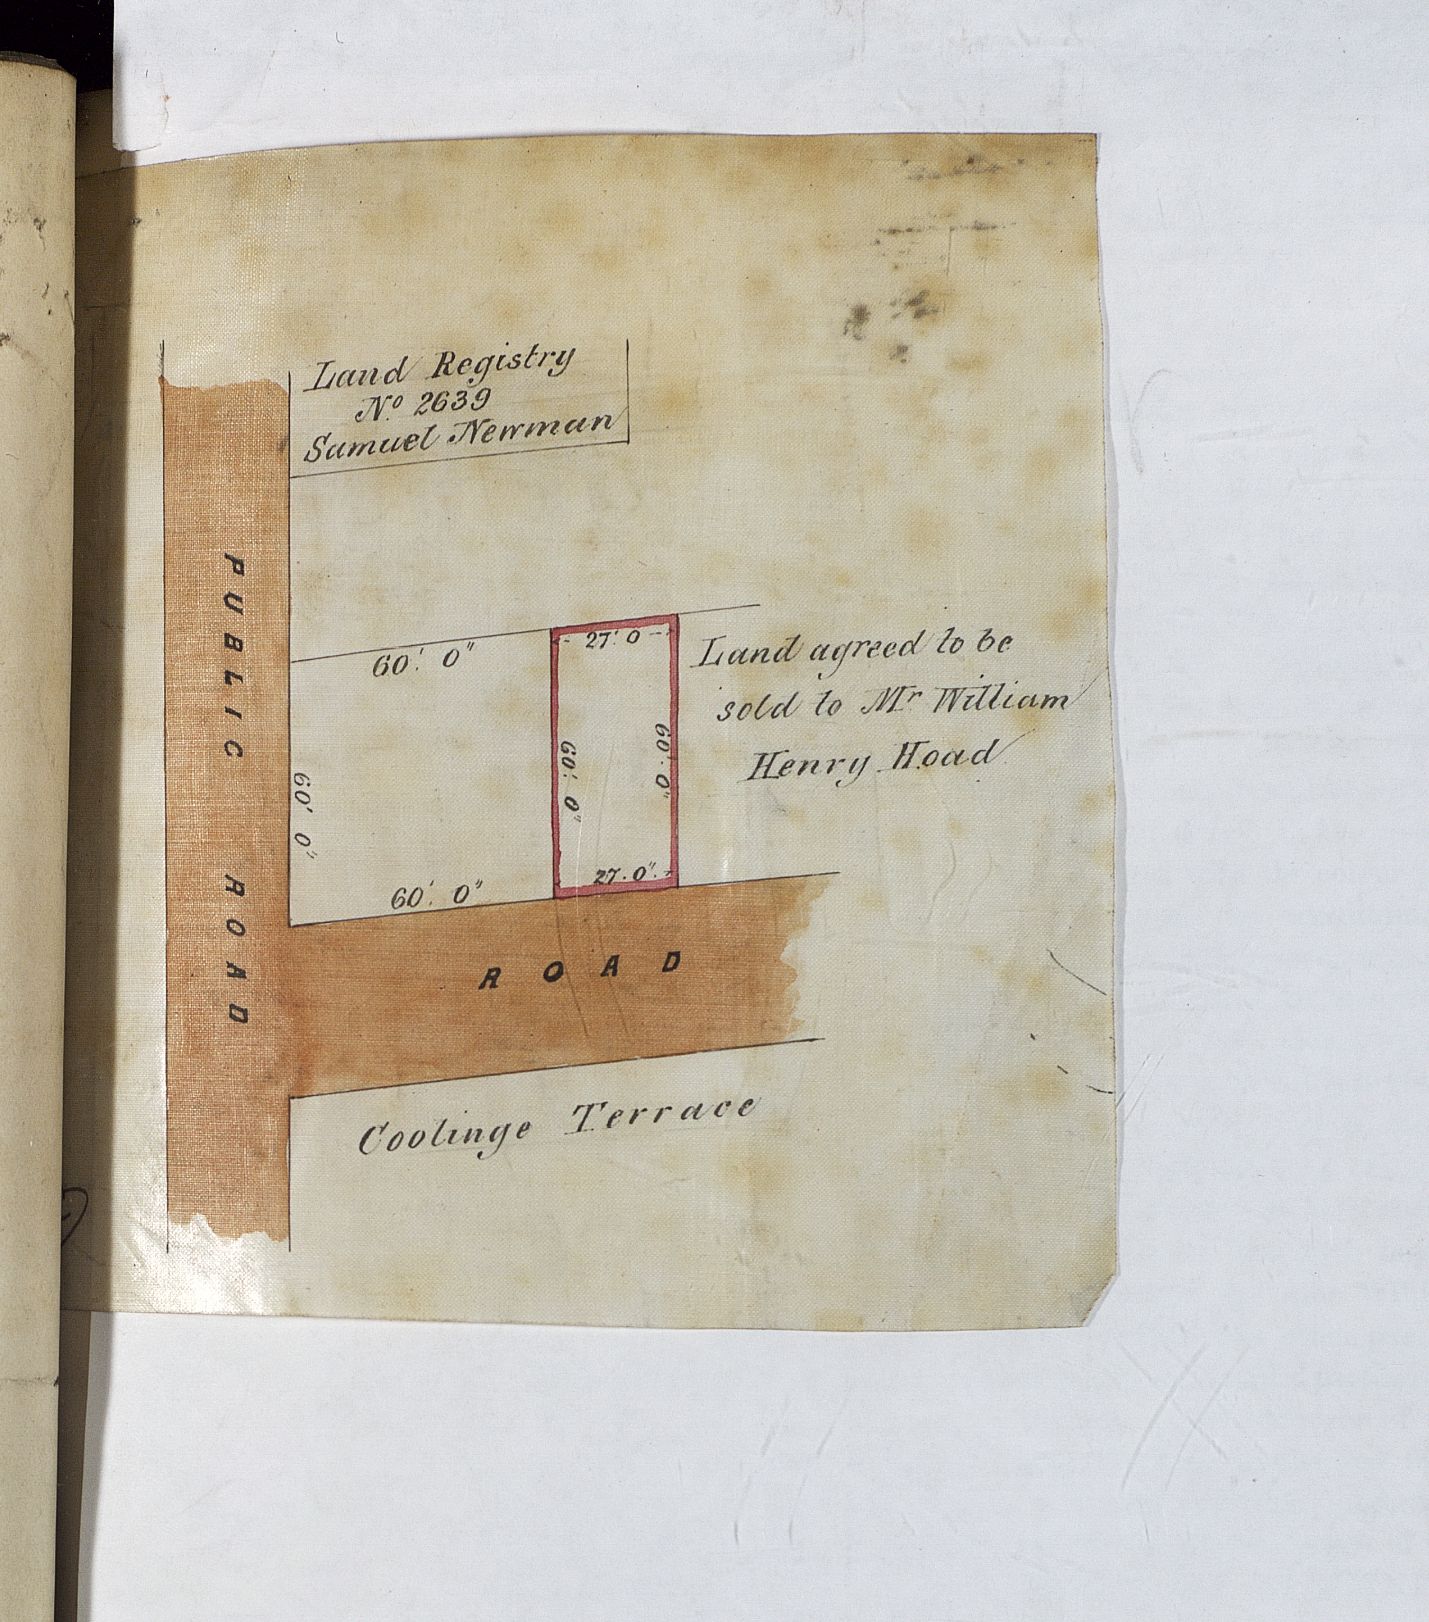 Land Registry
No. 2639
Samuel Newman
PUBLIC ROAD
60'. 0"
27'. 0
60'. 0"
60'. 0"
60'. 0"
27. 0".
60'. 0"
Land agreed to be
sold to Mr William
Henry Hoad
ROAD
Coolinge Terrace